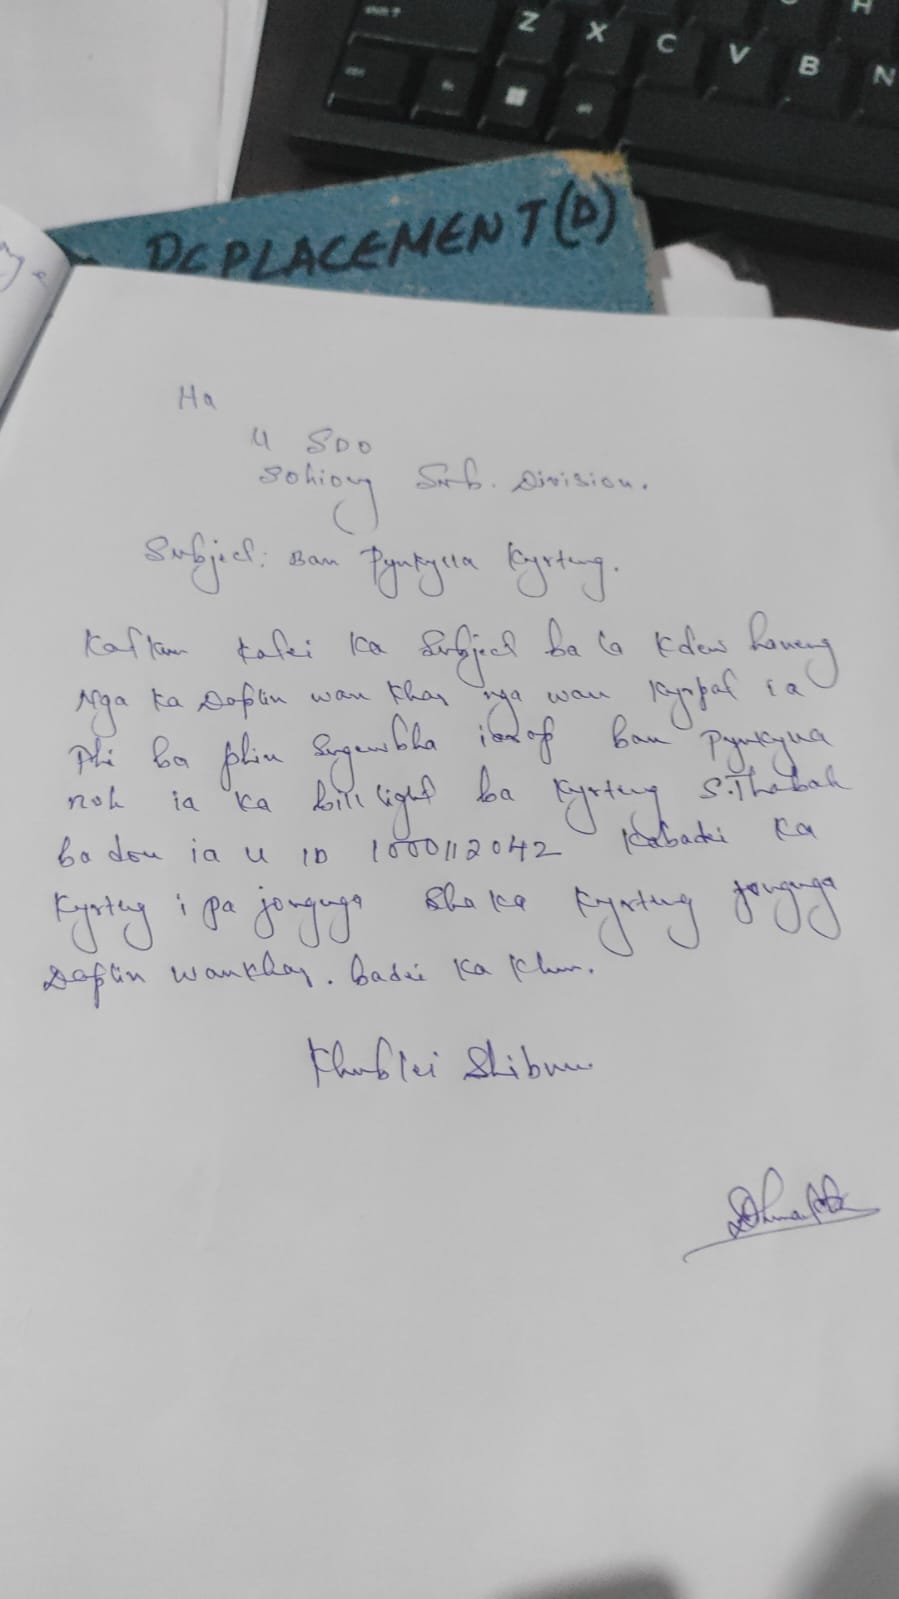 Z X C V B N H
DEPLACEMENT(D)
Ha
U SDO
Sohiong Sub. Division.
Subject: Ban Pynkylla Kyrteng.
Katkum kalei ka Subject ba la kdew haneng
Nga ka Daplin wankhar nga wan kyrpad ia
Phi ba phin Sngewbha ban pynkylla
noh ia ka bill light ba kyrteng S.Thabah
ba don ia u ID 1000112042 kabadei ka
Kyrteng i pa jongnga sha ka kyrteng jongnga
Daplin wankhar. badei ka khun.
Khublei Shibun.